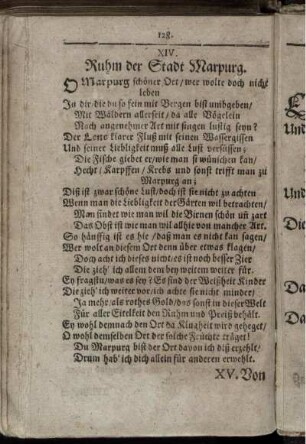 128.
XIV.
Ruhm der Stadt Marpurg.
O Marpurg schöner Ort/ wer wolte doch nicht
leben
In dir die du so fein mit Bergen bist umbgeben/
Mit Wäldern allerseit/ da alle Vögelein
Nach angenehmer Art mit singen lustig seyn?
Der Leno klarer Fluß mit seinen Wassergissen
Und seiner Liebligkeit muß alle Lust versüssen;
Die Fische giebet er/ wie man sie wünschen kan/
Hecht/ Karpffen/ Krebs und sonst trifft man zu
Marpurg an;
Diß ist zwar schöne Lust/ doch ist sie nicht zu achten
Wenn man die Liebligkeit der Gärten wil betrachten/
Man findet wie man wil die Bienen schön uñ zart
Das Obst ist wie man wil alhie von mancher Art.
So häuffig ist es hie/ daß man es nicht kan sagen/
Wer wolt an diesem Ort denn über etwas klagen/
Doch acht ich dieses nicht/ es ist noch besser Zier
Die zieh' ich allem dem bey weitem weiter für.
Ey fragstu/ was es sey? Es sind der Weißheit Kinder
Die zieh' ich weiter vor/ ich achte sie nicht minder/
Ja mehr als rothes Gold/ das sonst in dieser Welt
Für aller Eitelkeit den Ruhm und Preiß behält.
Ey wohl demnach den Ort da Klugheit wird geheget/
O wohl demselben Ort der solche Früchte träget!
Du Marpurg bist der Ort davon ich diß erzehl/
Drum hab' ich dich allein für anderen erwehl.
XV. Von